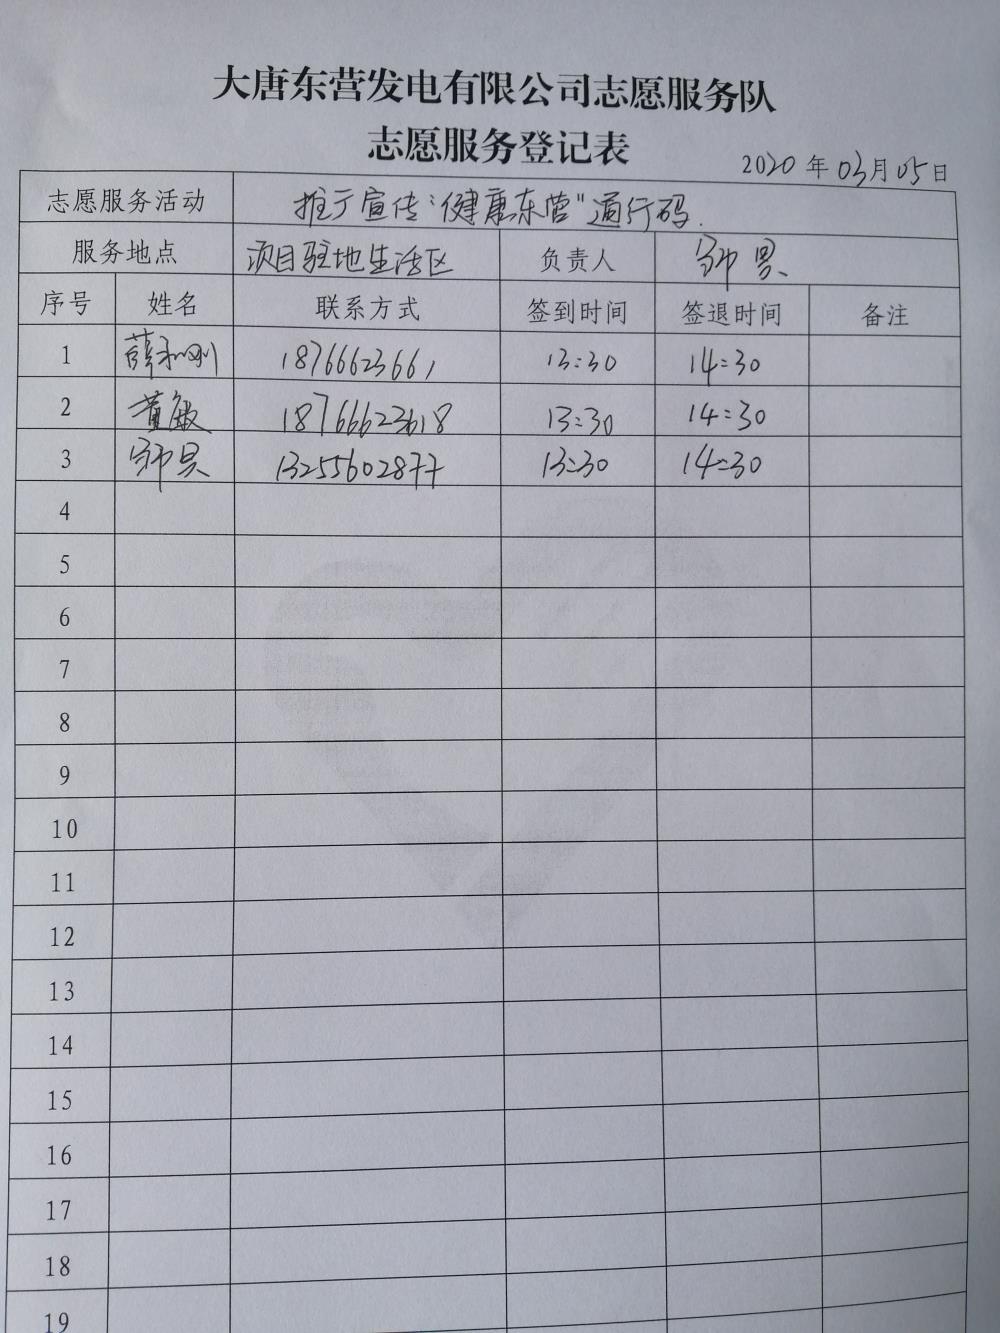 大唐东营发电有限公司志愿服务队
志愿服务登记表
2020年03月05日
志愿服务活动 推广宣传“健康东营”通行码.
服务地点 项目驻地生活区 负责人
序号 姓名 联系方式 签到时间 签退时间 备注
1 薛和刚 18766623661 13:30 14:30
2 董敏 18766623618 13:30 14:30
3 13255602877 13:30 14:30
4
5
6
7
8
9
10
11
12
13
14
15
16
17
18
19